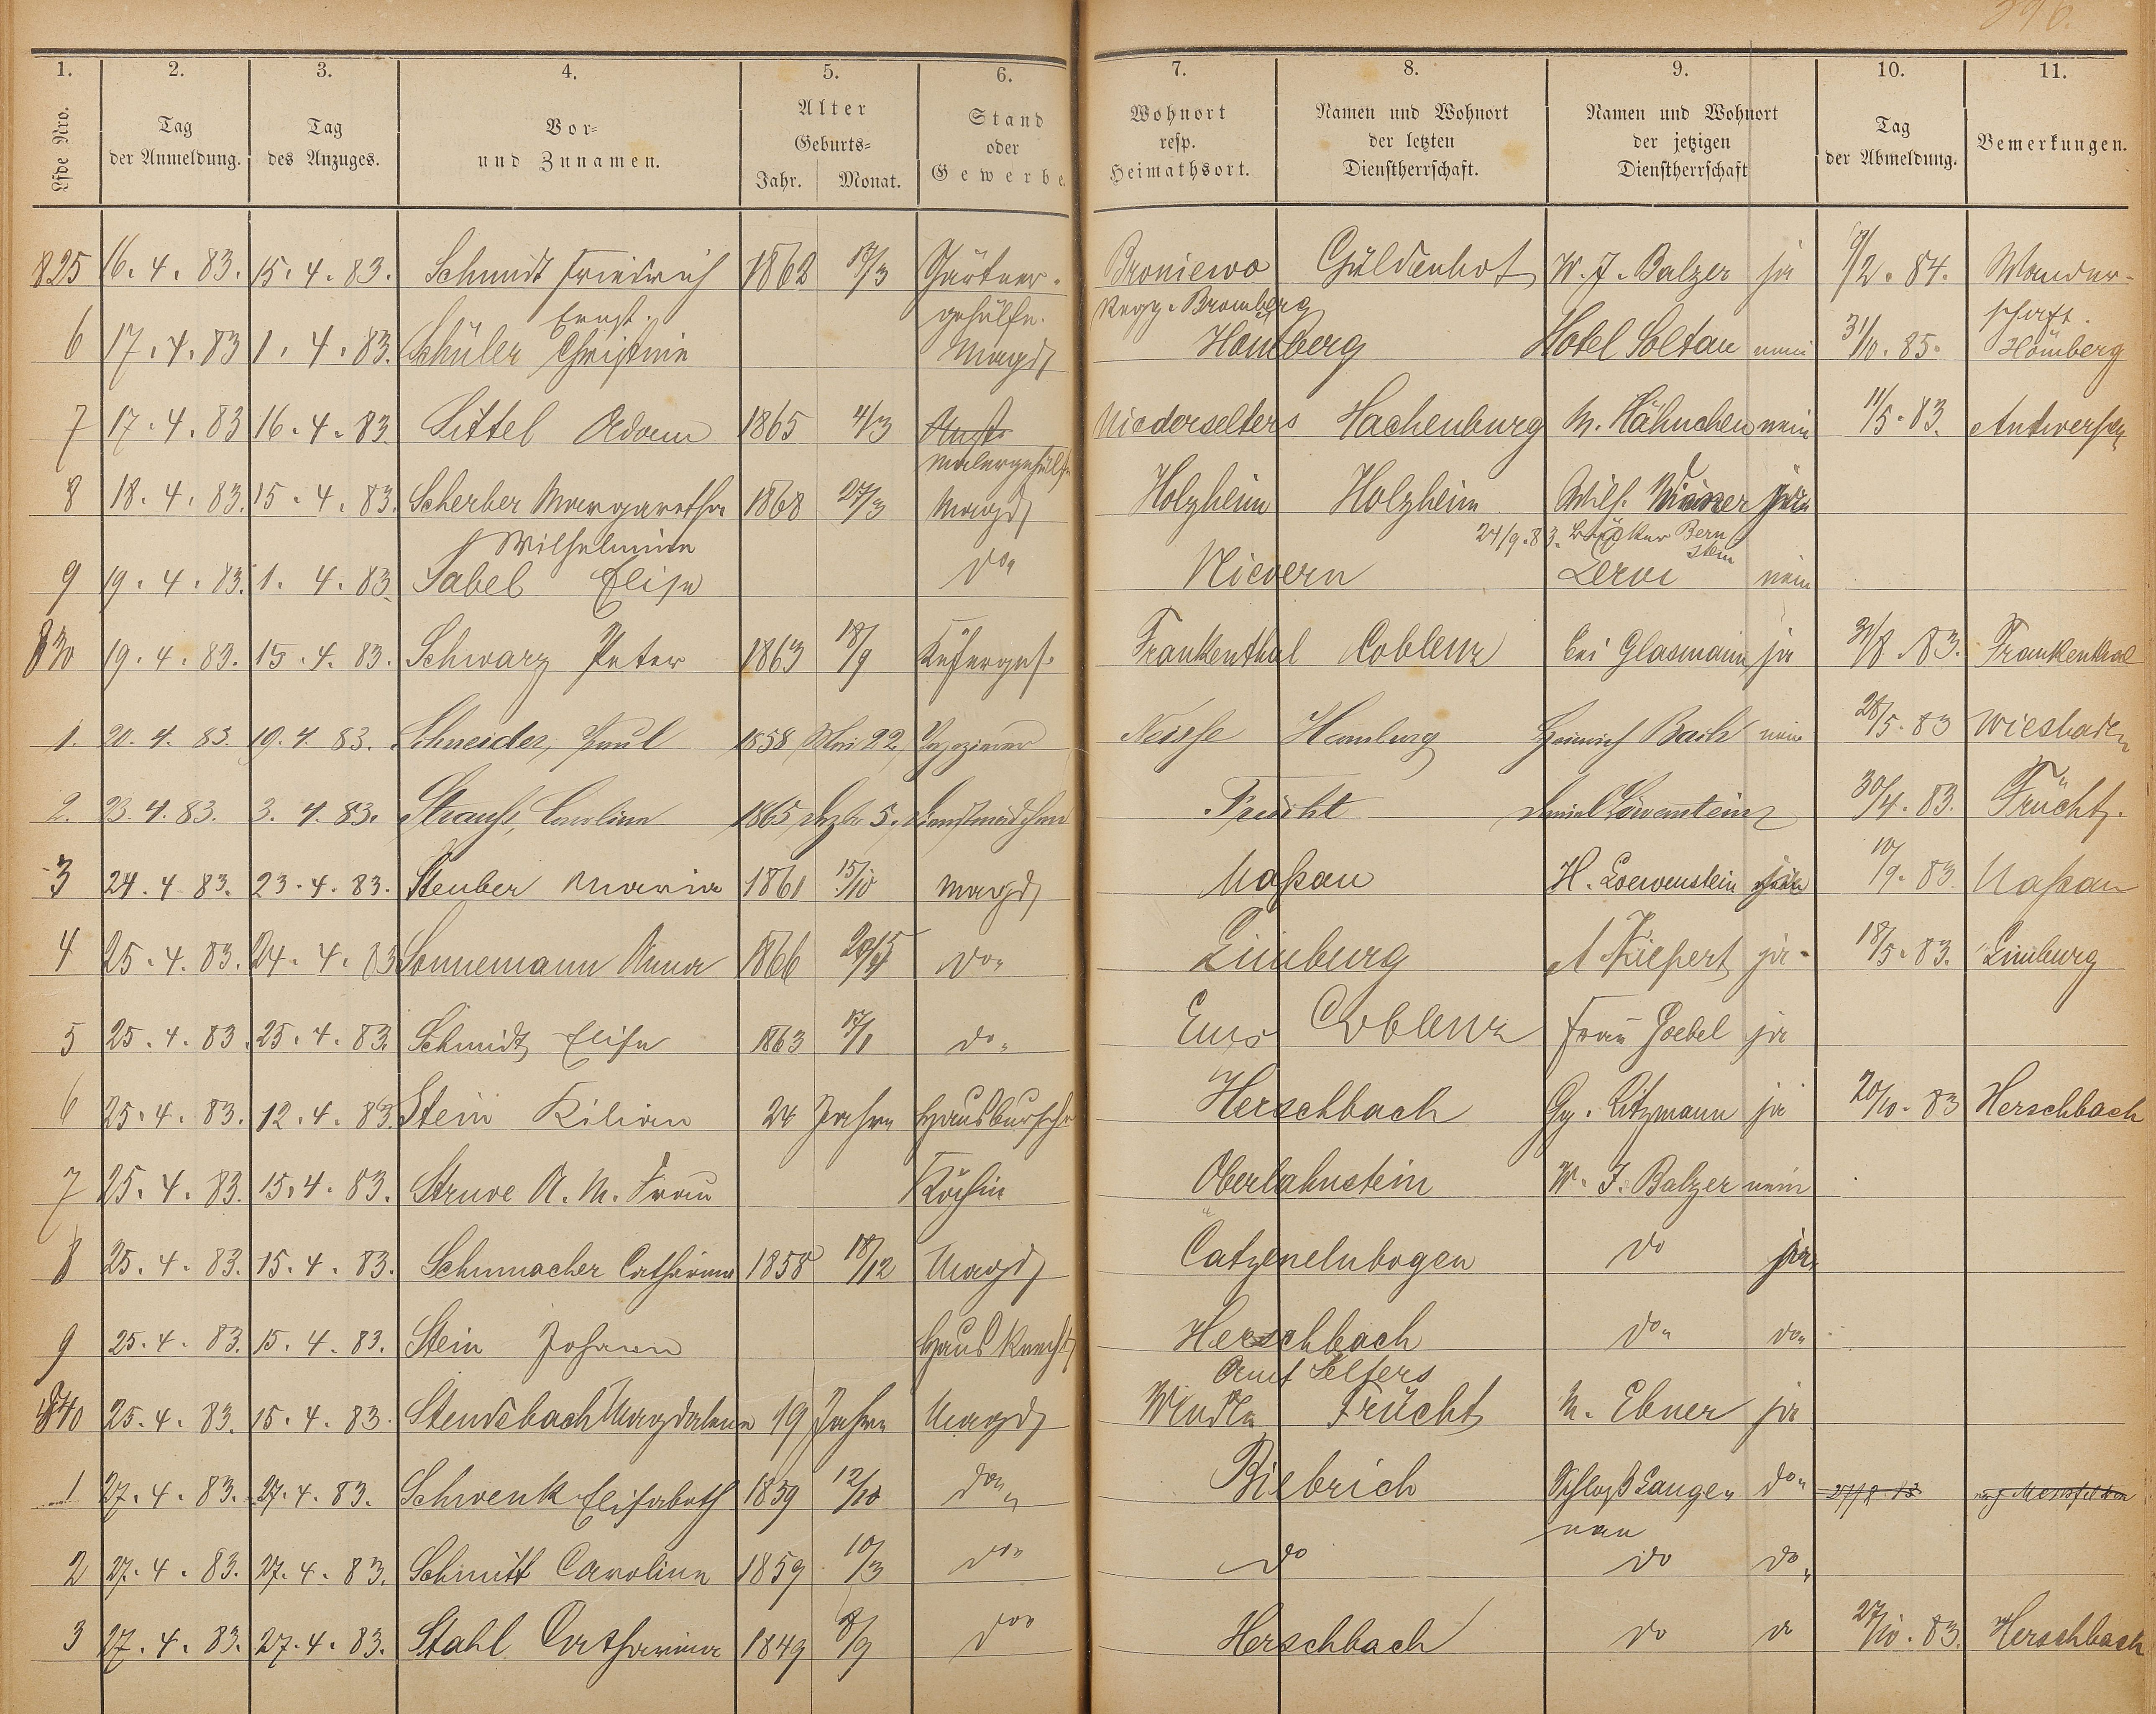 1. 2. 3. 4. 5. 6. 7. 8. 9. 10. 11.
Lfde Nro. Tag der Anmeldung. Tag des Anzuges. Vor- und Zunamen. Alter Geburts- Jahr. Monat. Stand oder Gewerbe. Wohnort resp. Heimathsort. Namen und Wohnort der letzten Dienstherrschaft. Namen und Wohnort der jetzigen Dienstherrschaft Tag der Abmeldung. Bemerkungen.
825 16. 4. 83. 15. 4. 83. Schmidt Friedrich 1862 Gärtner- Broniewo Güldenhof W. J. Balzer ja 9/2. 84. Wander-
Ernst. gehülfe. Regg. Bromberg schaft.
6 17. 4. 83 1. 4. 83. Schüler Christine Magd Homberg Hotel Soltau nein 31/10. 85. Homberg
7 17. 4. 83 16. 4. 83. Sittel Adam 1865 4/3 Niederselters Hachenburg M. Hähnchen nein 11/5. 83. Antwerpen
Malergehülfe
8 18. 4. 83. 15. 4. 83. Scherber Margaretha 1868 27/3 Magd Holzheim Holzheim Wilh. ja
Wilhelmine 24/9. 83. Bäcker Bern
stein
9 19. 4. 83. 1. 4. 83. Sabel Elise do Nievern nein
830 19. 4. 83. 15. 4. 83. Schwarz Peter 1863 18/9 Küferges. Frankenthal Coblenz bei Glasmann ja 31/8. 83. Frankenthal
1. 20. 4. 83. 19. 4. 83. Schneider, Paul 1858 Mai 22 Neisse Hamburg Heinrich Bach nein 28/5. 83 Wiesbaden
2. 23. 4. 83. 3. 4. 83. Strauß, Caroline 1865 Dezbr 5. Dienstmädchen Frücht Daniel Löwenstein 30/4. 83. Frücht.
3 24. 4 83. 23. 4. 83. Steuber Maria 1861 15/10 Magd Naßau H. Loewenstein 10/9. 83 Naßau
4 25. 4. 83. 24. 4. 83 Sonnemann Anna 1866 do Limburg A Kiepert ja 18/5. 83. Limburg
5 25. 4. 83. 25. 4. 83. Schmidt Elise 1863 17/1 do Ems Coblenz Frau Goebel ja
6 25. 4. 83. 12. 4. 83. Stein Kilian 24 Jahre Hausbursche Herschbach Gg. Ritzmann ja 20/10. 83 Herschbach
7 25. 4. 83. 15. 4. 83. Struve A. M. Frau Köchin Oberlahnstein W. J. Balzer nein
8 25. 4. 83. 15. 4. 83. Schumacher Catharina 1858 18/12 Magd Catzenelnbogen do ja
9 25. 4. 83. 15. 4. 83. Stein Johann Hausknecht Herschbach do do
Amt Selters
840 25. 4. 83. 15. 4. 83. Magdalena 19 Jahre Magd Frücht M. Ebner ja
1 27. 4. 83. 27. 4. 83. Schwenk Elisabeth 1859 12/10 do Biebrich Schloß Langen do
nau
2 27. 4. 83. 27. 4. 83. Schmitt Caroline 1859 10/3 do do do do
3 27. 4. 83. 27. 4. 83. Stahl Catharina 1849 8/9 do Herschbach do do 27/10. 83. Herschbach